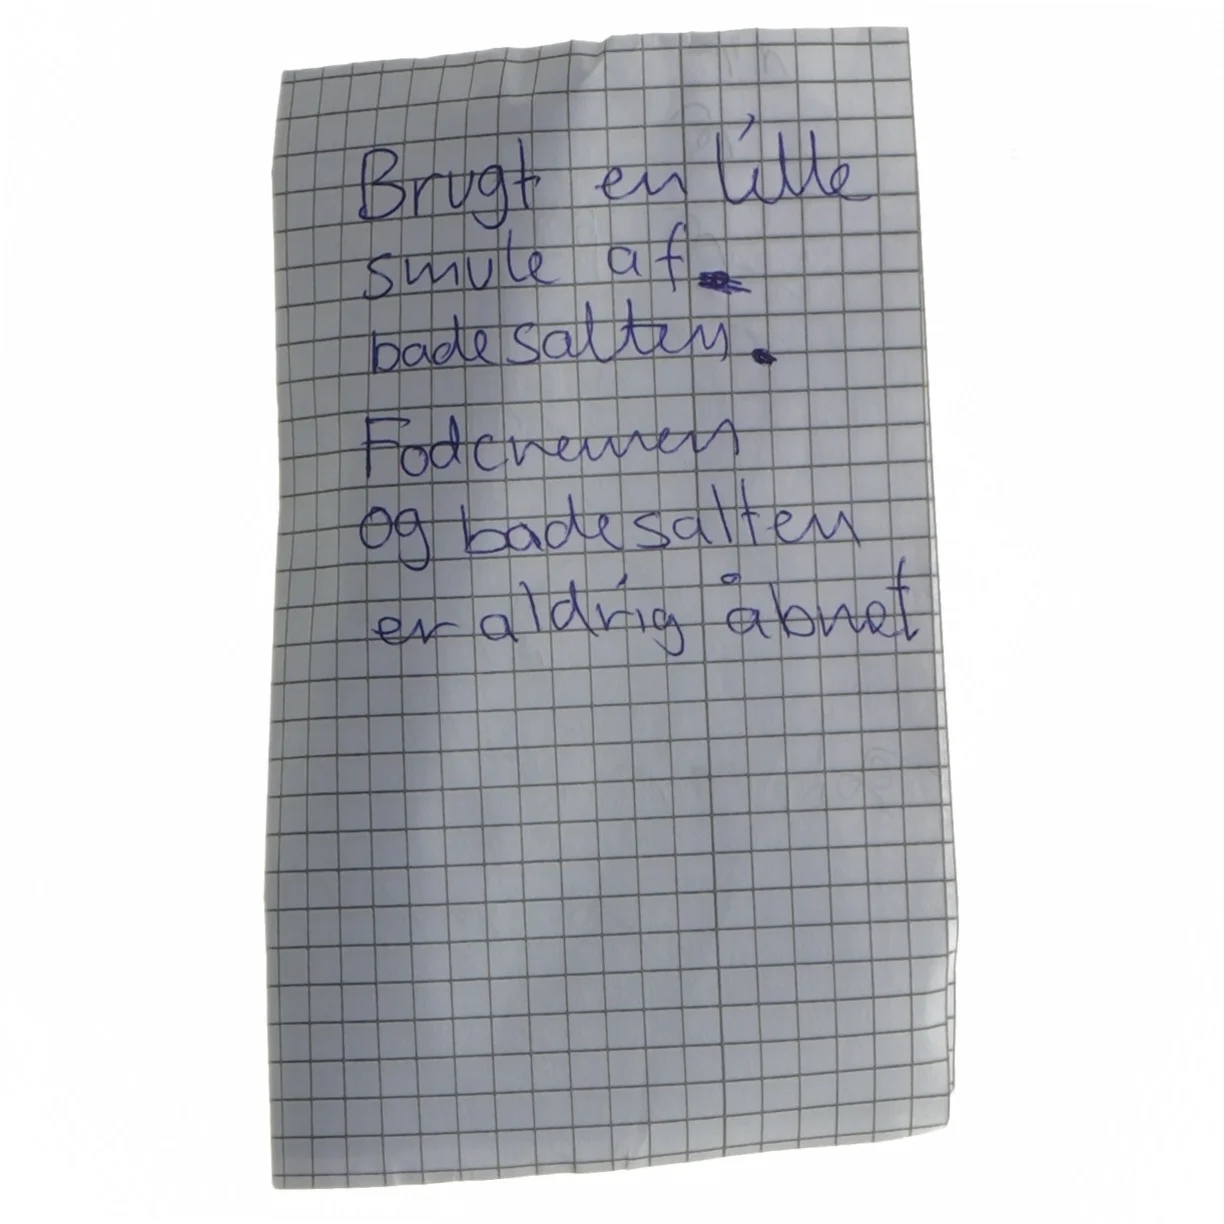 Brugt en lille
smule af
badesalten.
Fodcremen
og badesalten
er aldrig åbnet